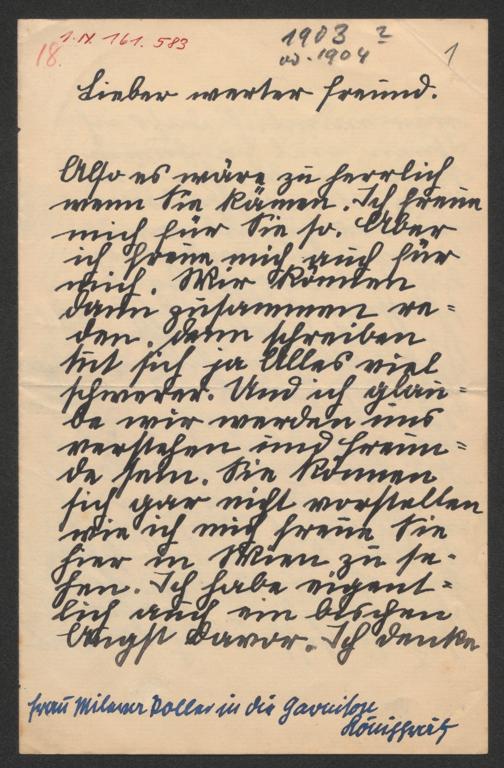 I.N. 161.583
18.
1903 ?
od. 1904
1
Lieber werter Freund.
Also es wäre zu herrlich
wenn Sie kämen. Ich freue
mich für Sie so. Aber
ich freue mich auch für
mich. Wir können
dann zusammen re-
den, denn schreiben
tut sich ja Alles viel
schwerer. Und ich glau-
be wir werden uns
verstehen und Freun-
de sein. Sie können
sich gar nicht vorstellen
wie ich mich freue Sie
hier in Wien zu se-
hen. Ich habe eigent-
lich auch ein bischen
Angst davor. Ich denke
Frau Mileva Roller in die Garnison
Königgrätz